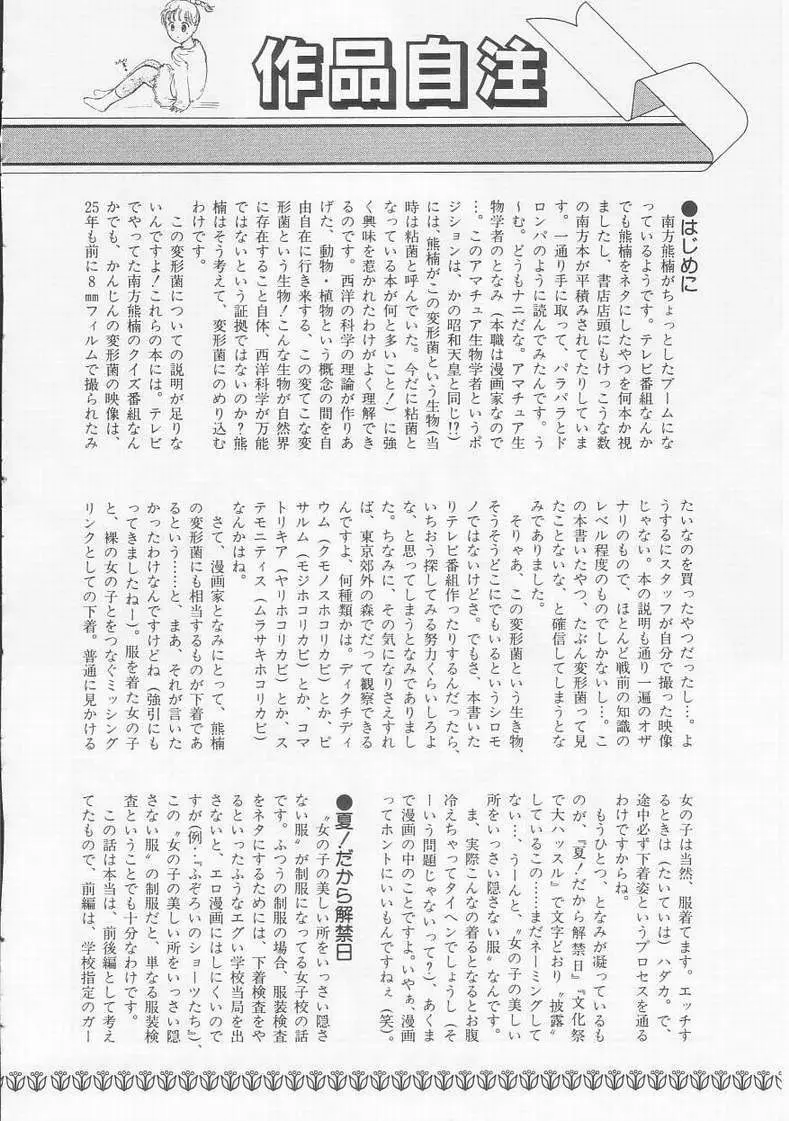 作品自注
●はじめに
南方熊楠がちょっとしたブームにな
っているようです。テレビ番組なんか
でも熊楠をネタにしたやつを何本か視
ましたし、書店店頭にもけっこうな数
の南方本が平積みされてたりしていま
す。一通り手に取って、パラパラとド
ロンパのように読んでみたんです。う
〜む。どうもナニだな。アマチュア生
物学者のとなみ（本職は漫画家なので
…。このアマチュア生物学者というポ
ジションは、かの昭和天皇と同じ!?）
には、熊楠がこの変形菌という生物（当
時は粘菌と呼んでいた。今だに粘菌と
なっている本が何と多いこと!）に強
く興味を惹かれたわけがよく理解でき
るのです。西洋の科学の理論が作りあ
げた、動物・植物という概念の間を自
由自在に行き来する、この変てこな変
形菌という生物!こんな生物が自然界
に存在すること自体、西洋科学が万能
ではないという証拠ではないのか?熊
楠はそう考えて、変形菌にのめり込む
わけです。
この変形菌についての説明が足りな
いんですよ!これらの本には。テレビ
でやってた南方熊楠のクイズ番組なん
かでも、かんじんの変形菌の映像は、
25年も前に8㎜フィルムで撮られたみ
たいなのを買ったやつだったし…。よ
うするにスタッフが自分で撮った映像
じゃない。本の説明も通り一遍のオザ
ナリのもので、ほとんど戦前の知識の
レベル程度のものでしかないし…。こ
の本書いたやつ、たぶん変形菌って見
たことないな、と確信してしまうとな
みでありました。
そりゃあ、この変形菌という生き物、
そうそうどこにでもいるというシロモ
ノではないけどさ。でもさ、本書いた
りテレビ番組作ったりするんだったら、
いちおう探してみる努力くらいしろよ
な、と思ってしまうとなみでありまし
た。ちなみに、その気になりさえすれ
ば、東京郊外の森でだって観察できる
んですよ、何種類かは。ディクチディ
ウム（クモノスホコリカビ）とか、ピ
サルム（モジホコリカビ）とか、コマ
トリキア（ヤリホコリカビ）とか、ス
テモニティス（ムラサキホコリカビ）
なんかはね。
さて、漫画家となみにとって、熊楠
の変形菌にも相当するものが下着であ
るという……と、まあ、それが言いた
かったわけなんですけどね（強引にも
ってきましたねー）。服を着た女の子
と、裸の女の子とをつなぐミッシング
リンクとしての下着。普通に見かける
女の子は当然、服着てます。エッチす
るときは（たいていは）ハダカ。で、
途中必ず下着姿というプロセスを通る
わけですからね。
もうひとつ、となみが凝っているも
のが、『夏!だから解禁日』『文化祭
で大ハッスル』で文字どおり〝披露〟
しているこの……まだネーミングして
ない…、うーんと、〝女の子の美しい
所をいっさい隠さない服〟なんです。
ま、実際こんなの着るとなるとお腹
冷えちゃってタイヘンでしょうし（そ
ーいう問題じゃないって?）、あくま
で漫画の中のことですよ。いやぁ、漫画
ってホントにいいもんですねぇ（笑）。
●夏!だから解禁日
〝女の子の美しい所をいっさい隠さ
ない服〟が制服になってる女子校の話
です。ふつうの制服の場合、服装検査
をネタにするためには、下着検査をや
るといったふうなエグい学校当局を出
さないと、エロ漫画にはしにくいので
すが（例:『ふぞろいのショーツたち』）、
この〝女の子の美しい所をいっさい隠
さない服〟の制服だと、単なる服装検
査ということでも十分なわけです。
この話は本当は、前後編として考え
てたもので、前編は、学校指定のガー